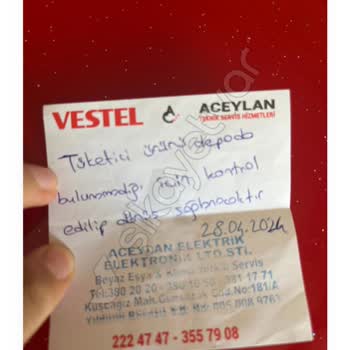 VESTEL
ACEYLAN
TEKNİK SERVİS HİZMETLERİ
Tüketici ürünü depoda
bulunmadığı için kontrol
edilip dönüş yapılacaktır
28.04.2024
ACEYLAN ELEKTRİK
ELEKTRONİK LTD.ŞTİ.
Beyaz Eşya & Klima Yetkili Servis
Tel:380 20 20 - 380 10 50 - 381 17 71
Kuşcağız Mah. Cad.No:181/A
222 47 47 - 355 79 08